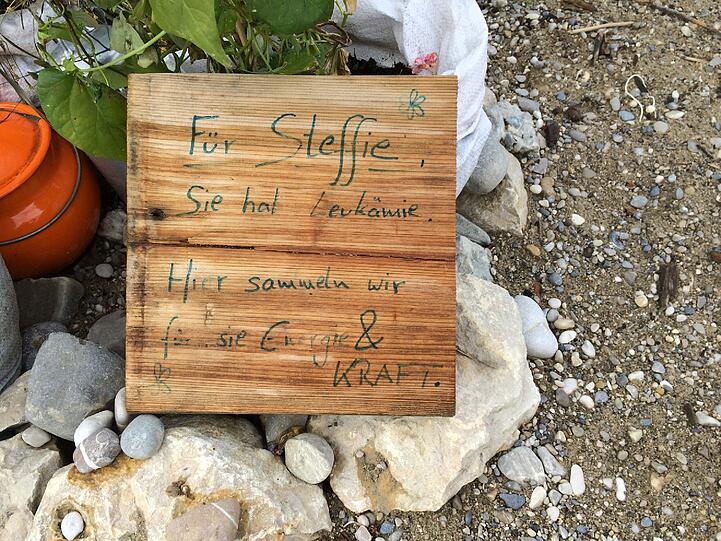 Für Steffie,
Sie hat Leukämie.
Hier sammeln wir
für sie Energie &
KRAFT.